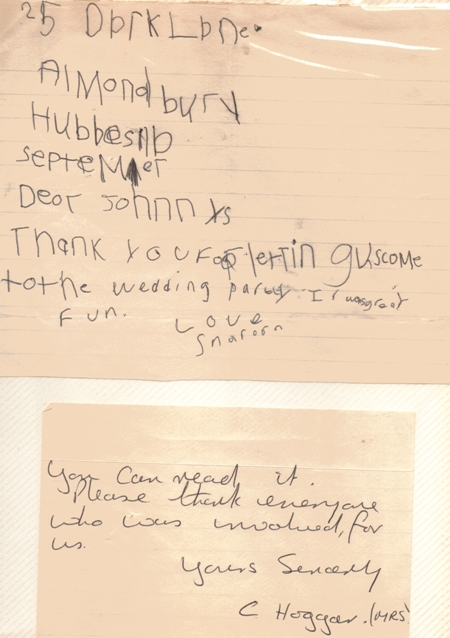 25 Dark Lane.
Almondbury
Hubbesilb
septeMer
Dear Johnnys
Thank you For lettin guscome
tothe wedding party. It wasgreat
Fun. Love
Sharon
You can read it.
please thank everyone
who was involved, for
us.
Yours Sincerely
C Hoggar. (MRS)